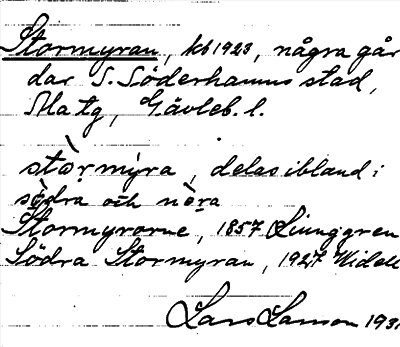 Stormyran, kb 1923, några går
dar S. Söderhamns stad,
Ma tg, Gävleb. l.
stòrmýra, delas ibland i
sødra och nòra
Stormyrorne, 1857 Ljunggren
Södra Stormyran, 1927 Widell
Lars Larson 193